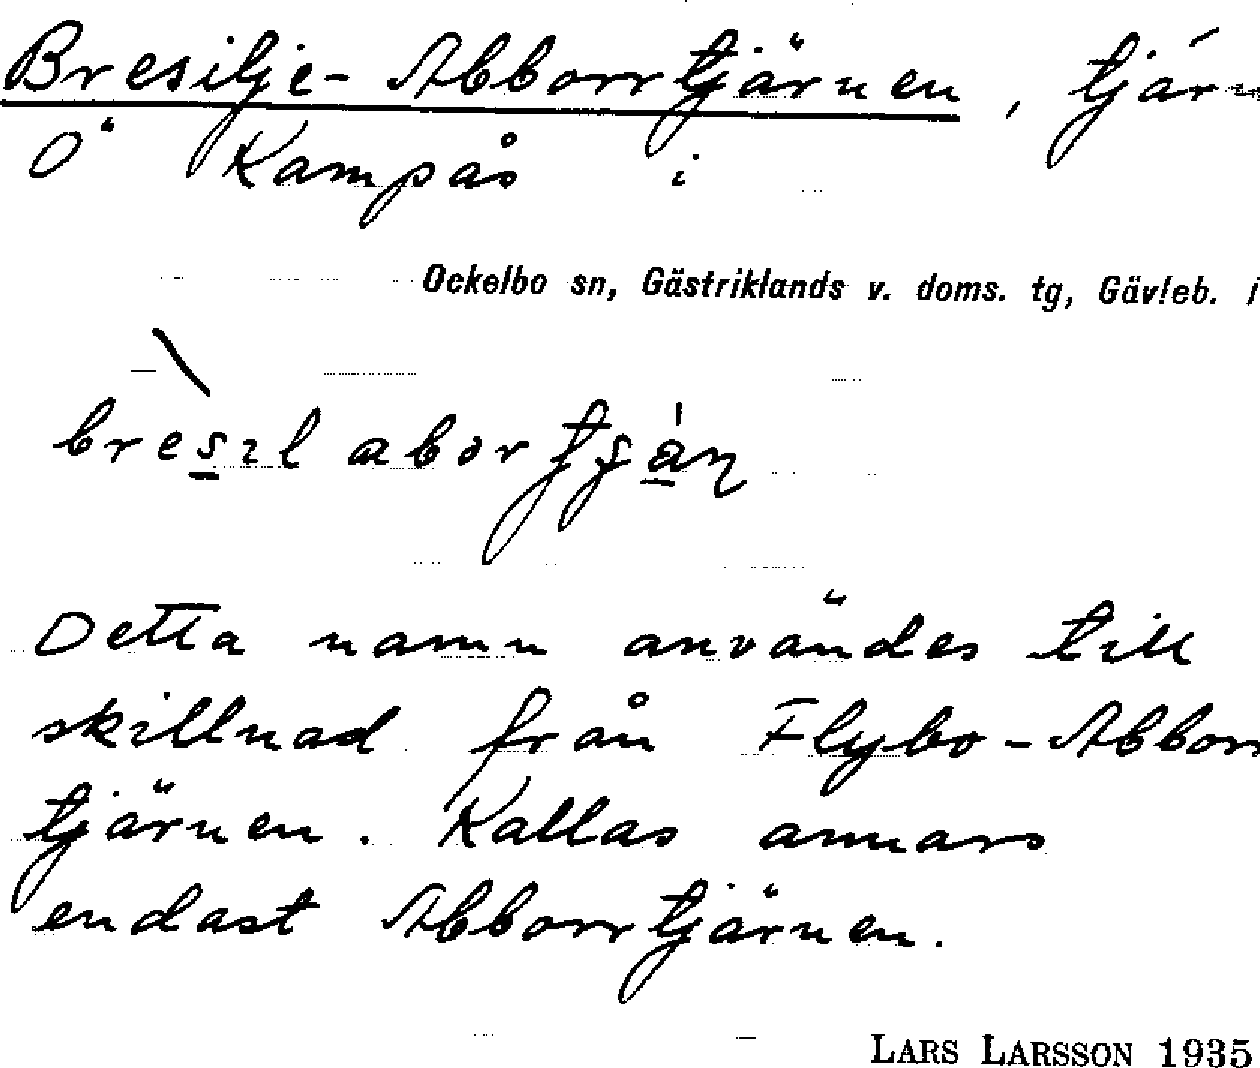 Bresilje-Abborrtjärnen, tjärn
Ö Kampås i
Ockelbo sn, Gästriklands v. doms. tg, Gävleb.
Detta namn användes till
skillnad från Flybo-Abborr
tjärnen. Kallas annars
endast Abborrtjärnen.
LARS LARSSON 1935